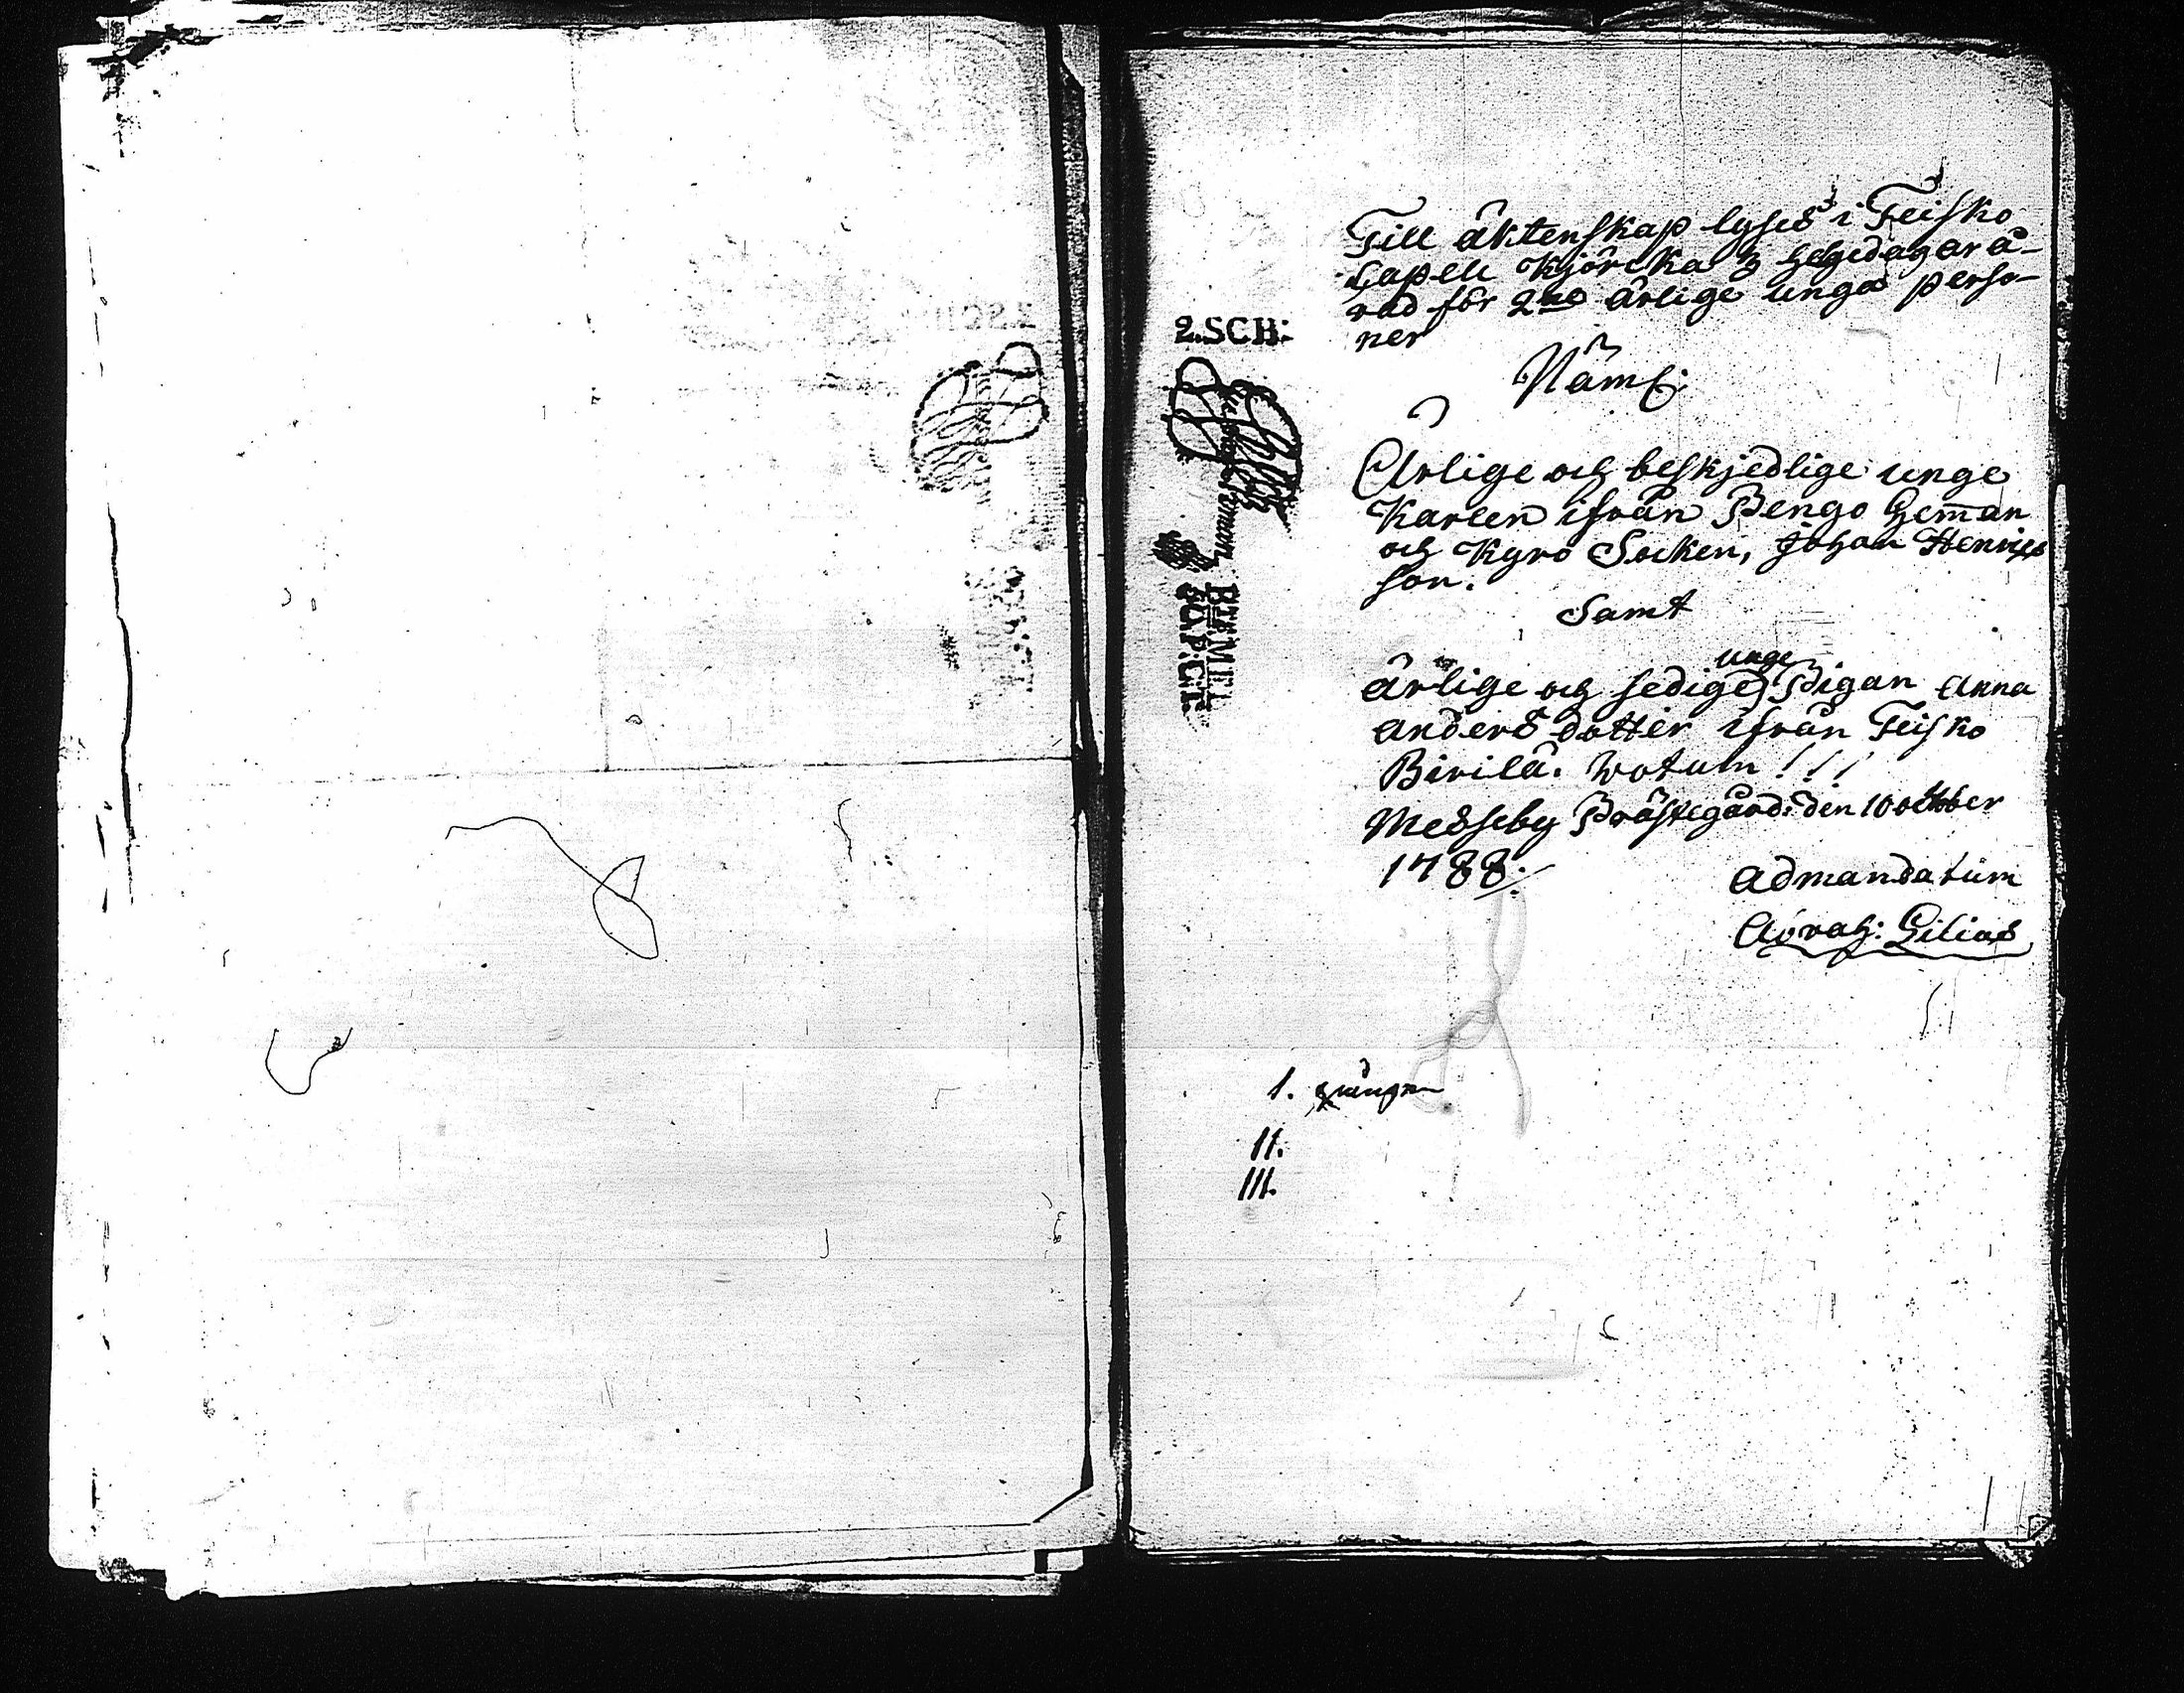 Till äktenskap lyses i Teisko
Capell kjörcka 3 helgedagar å-
rad för 2ne ärlige unga perso-
ner
Näml:
Ärlige och beskjedlige unge
Karlen ifrån Pengo Hemman
och Kyro Socken, Johan Henrics
son.
Samt
unge
ärlige och sedige Pigan Anna
Anders dotter ifrån Teisko
Birilä. Votum !!!
Messuby Prästegård: den 10 october
1788.
Admandatum
Abrah: Gilius
2.SCH:
STEMPL:
PAP:CT.
I. gången
II.
III.